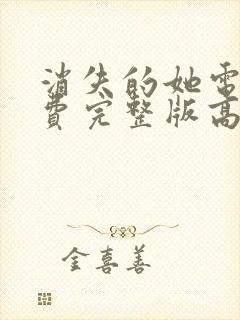 消失的她電
費完整版高
金喜善